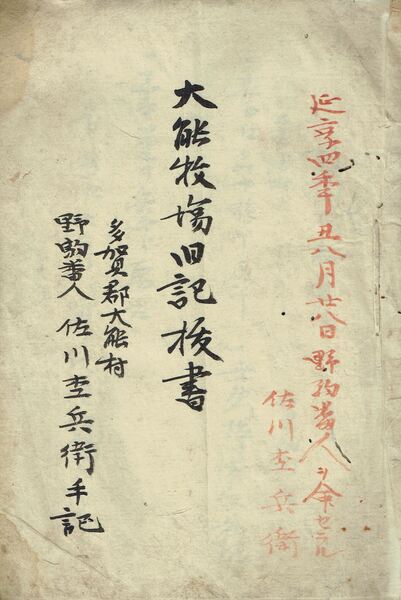 延享四季丑八月廿八日野駒番人ヲ命セラル
佐川杢兵衛
大能牧場旧記抜書
多賀郡大能村
野駒番人 佐川杢兵衛手記